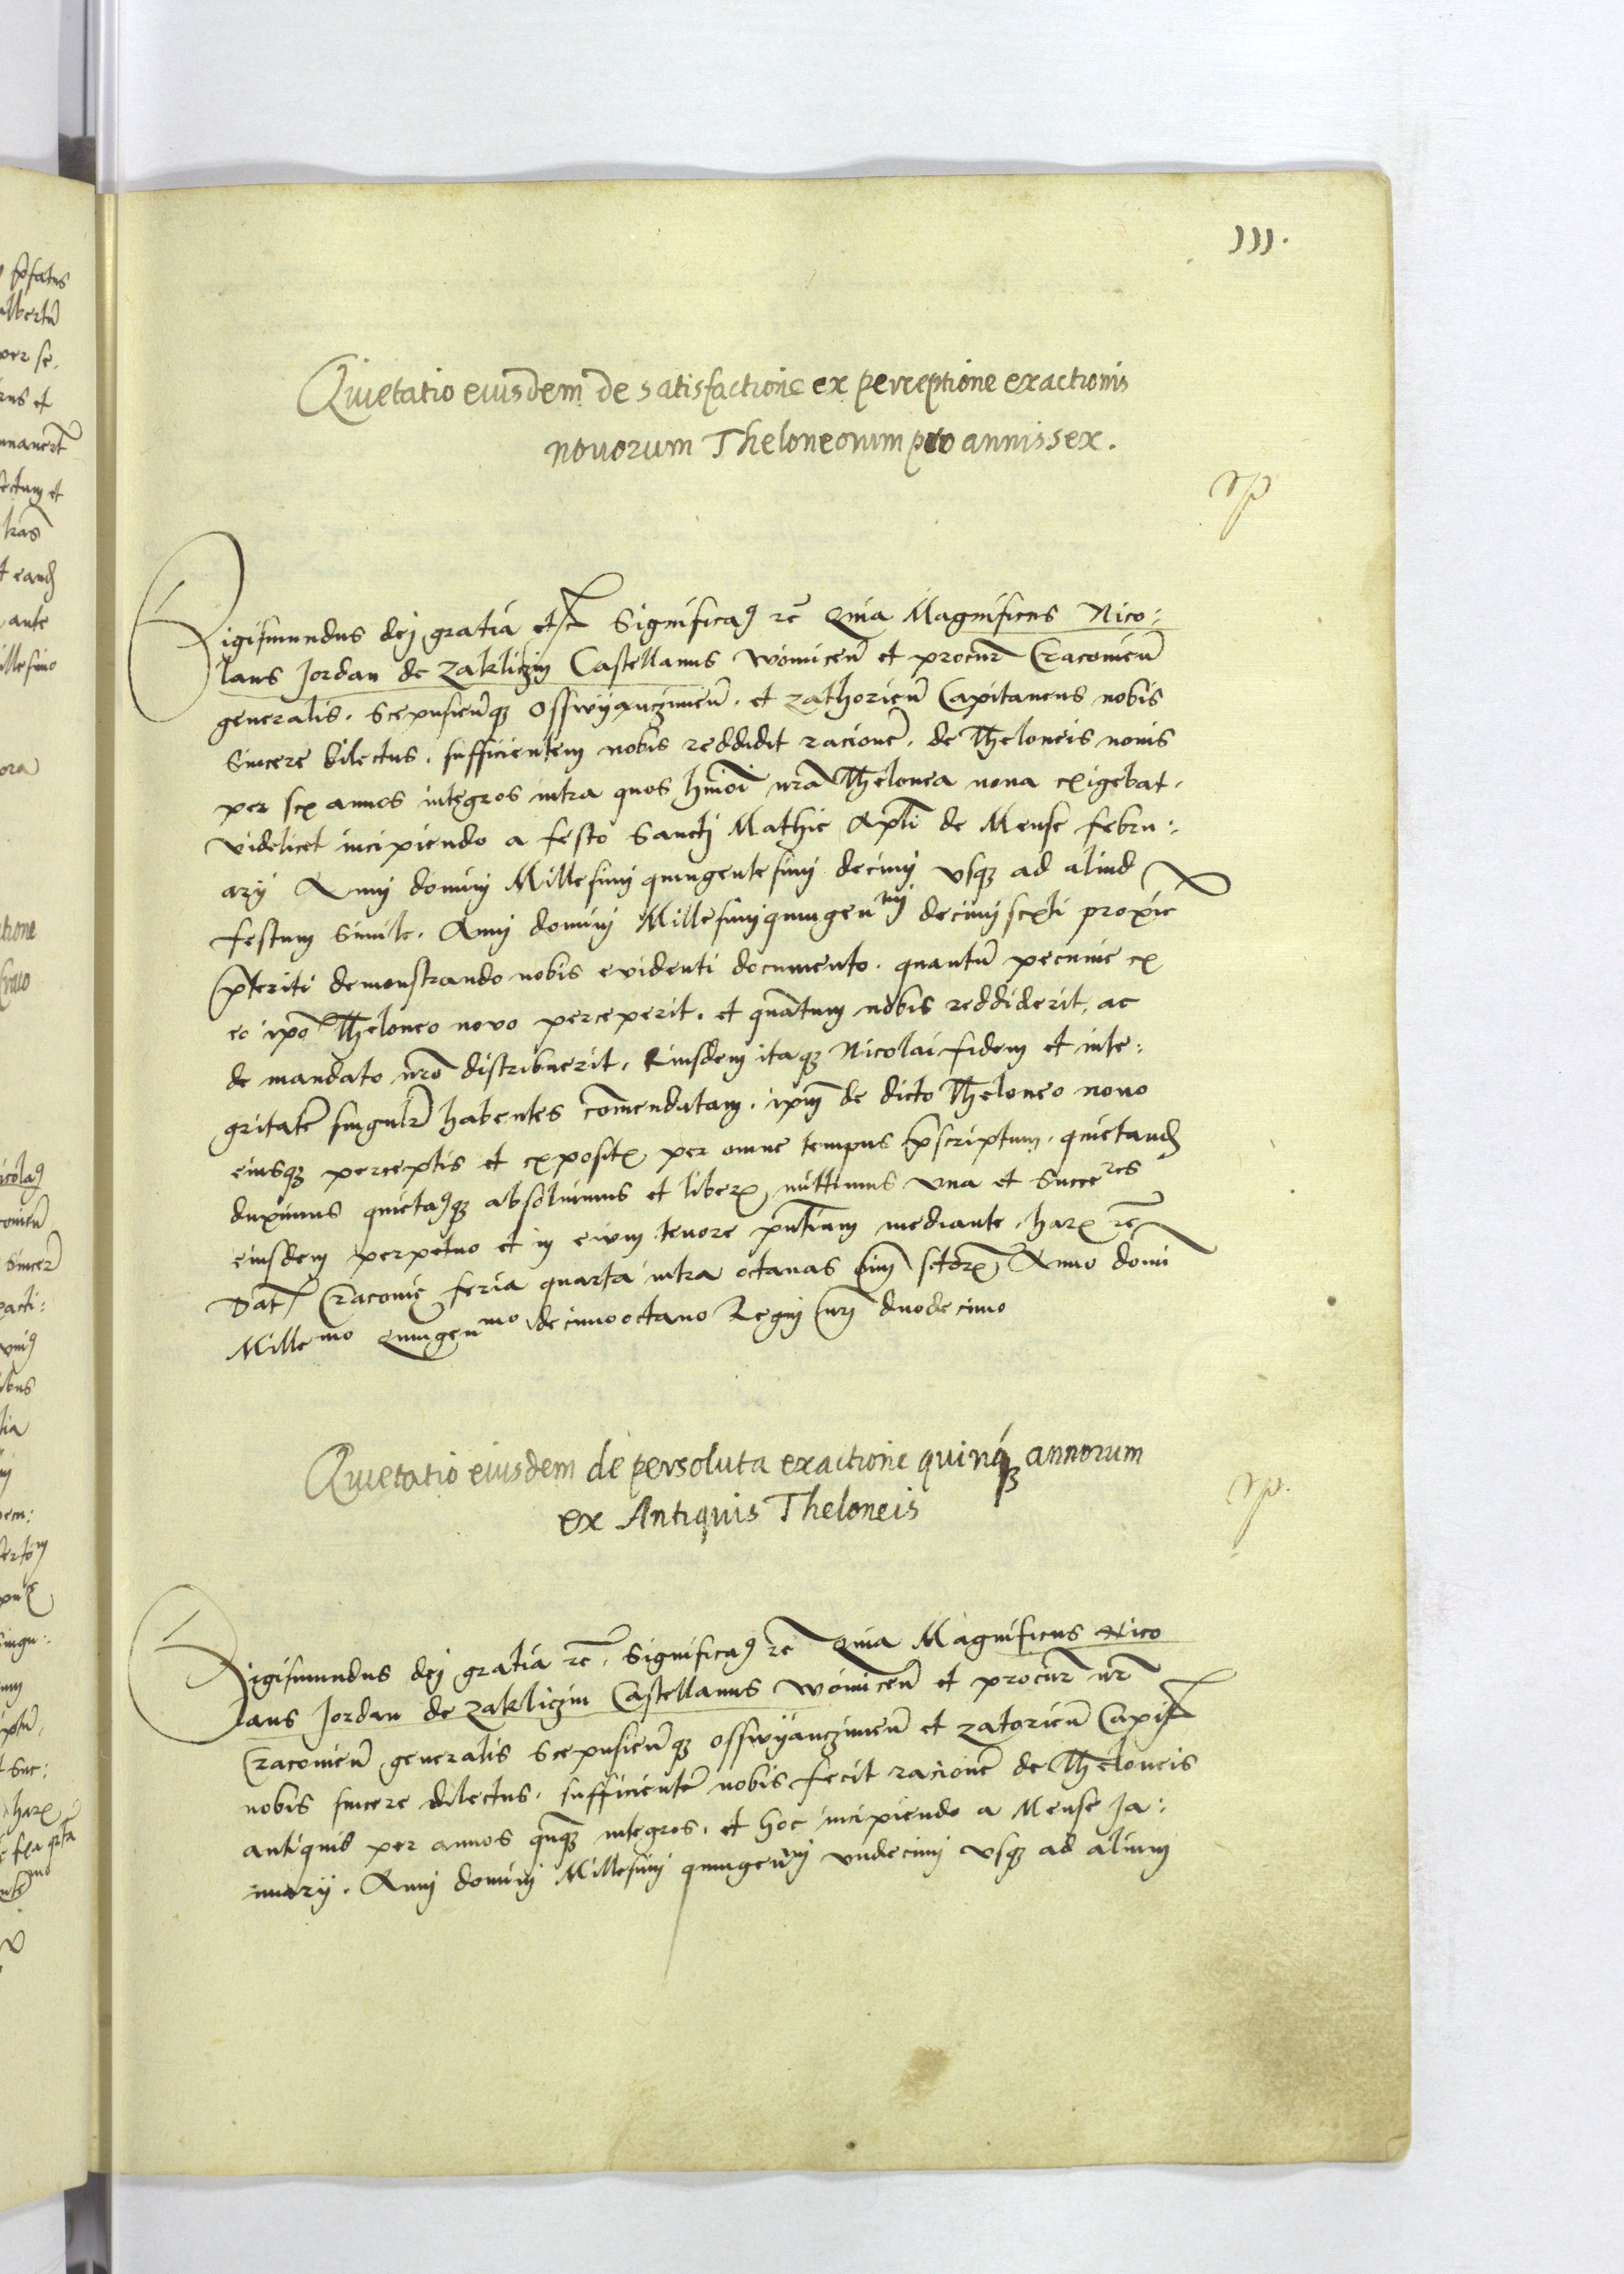 111.
Quietatio eiusdem de satisfactione ex perceptione exactionis
nouorum Theloneorum pro annis sex.
Sp
Sigismundus dej gratia etc Significaꝰ rē Quia Magnificus Nico:
laus Jordan de Zakliczin Castellanus woiniceñ et procur̃ Cracovieñ
generalis. Scepusieñqꝫ Osswyanczimeñ. et Zathorieñ Capitaneus nobis
Sincere dilectus. sufficientem nobis reddidit racionē. de Theloneis novis
per sex annos integros intra quos hmōi nr̃a Thelonea nova exigebat.
videlicet incipiendo a festo Sanctj Mathie Apl̃i de Mense febru:
arÿ Annj dominj Millesimj quingentesimj decimj vsqꝫ ad aliud
festum Simile. Annj dominj Millesimj quingenᵐʲ decimj sexti proxie
p̃teriti demonstrando nobis evidenti documento. quantū pecunie ex
eo ip̃o Theloneo novo perceperit. et quātum nobis reddiderit, ac
de mandato nr̃o distribuerit. Eiusdem itaqꝫ Nicolai fidem et inte:
gritatē singulr̃ habentes cōmendatam. ip̃m de dicto Theloneo novo
eiusqꝫ perceptis et expositꝭ per omne tempus p̃scriptum. quietandꝭ
duximus quietaꝰqꝫ absolvimus et liberꝝ mittimus vna et Succeʳᵉˢ
eiusdem perpetuo et in evum tenore p̃ntium mediante. harꝝ rē
Dat̃ Cracovię feria quarta intra octavas oim̃ sctorꝝ Anno domi
Milleᵐᵒ Quingenᵐᵒ decimooctavo Regnj nr̃j duodecimo
Quietatio eiusdem de persoluta exactione quinqꝫ annorum
ex Antiquis Theloneis
Sp.
Sigismundus dej gratia rē. Significaꝰ rē Quia Magnificus Nico
laus Jordan de Zakliczin Castellanus woiniceñ et procur̃ nr̃
Cracovieñ generalis Scepusieñqꝫ Osswyanczimeñ et Zatorieñ Capit̃
nobis sincere dilectus. sufficientē nobis fecit racionē de Theloneis
antiquis per annos qnqꝫ integros. et hoc incipiendo a Mense Ja:
nuarÿ. Annj dominj Millesimj quingenᵐʲ vndecimj vsqꝫ ad alium